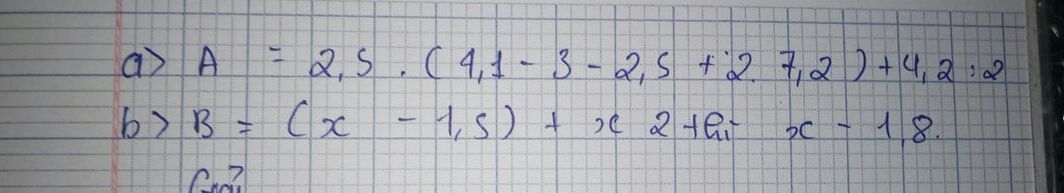 a> A = 2,5 . ( 4,1 - 3 - 2,5 + 2. 7,2 ) + 4,2 : 2
b> B = (x - 1,5) + x 2 tại x - 1,8.
Giải